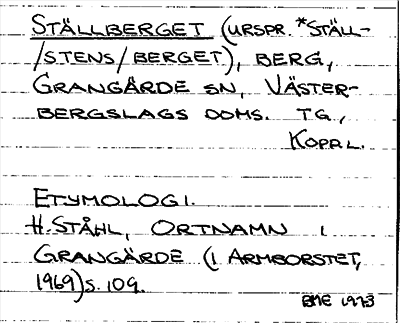 STÄLLBERGET (URSPR. *STÄLL-
/STENS/BERGET), BERG,
GRANGÄRDE SN, VÄSTER-
BERGSLAGS DOMS. TG.,
KOPP L.
ETYMOLOGI.
H. STÅHL, ORTNAMN I
GRANGÄRDE (I ARMBORSTET,
1969) S. 109.
BME 1973